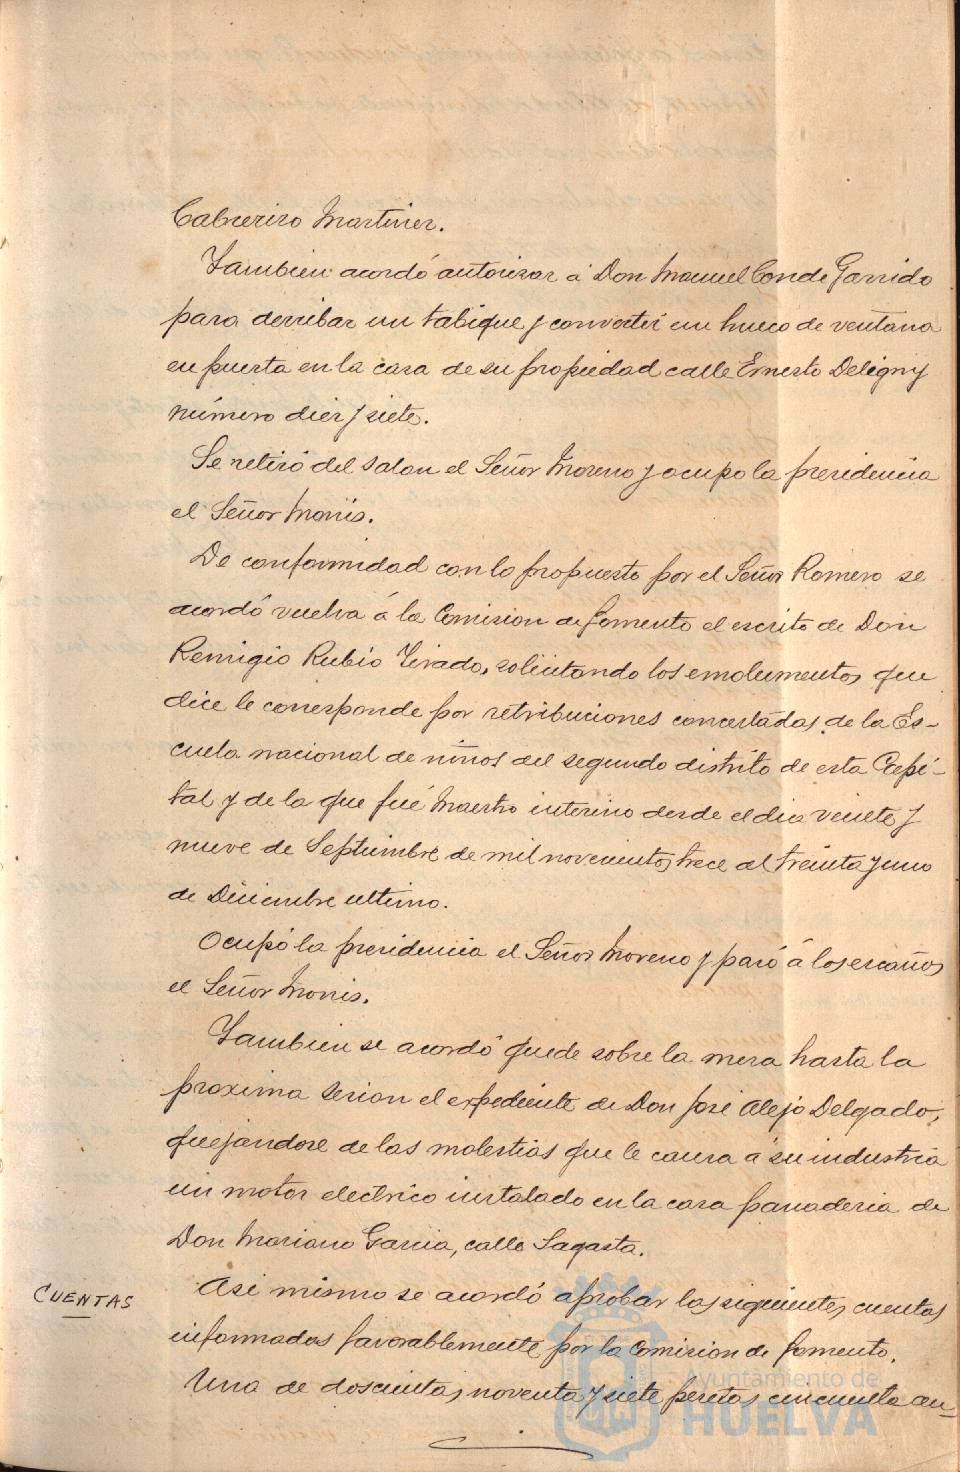 Cabrerizo Martinez.
Tambien acordó autorizar á Don Manuel Conde Garrido
para derribar un tabique y convertir un hueco de ventana
en puerta en la casa de su propiedad calle Ernesto Deligny
número diez y siete.
Se retiró del salon el Señor Moreno y ocupo la presidencia
el Señor Monis.
De conformidad con lo propuesto por el Señor Romero se
acordó vuelva á la Comision de fomento el escrito de Don
Remigio Rubio Tirado, solicitando los emolumentos que
dice le corresponde por retribuciones concertadas de la Es-
cuela nacional de niños del segundo distrito de esta Capi-
tal y de la que fué Maestro interino desde el dia veinte y
nueve de Septiembre de mil novecientos trece al treinta y uno
de Diciembre ultimo.
Ocupó la presidencia el Señor Moreno y pasó á los escaños
el Señor Monis.
Tambien se acordó quede sobre la mesa hasta la
proxima sesion el expediente de Don José Alejo Delgado,
quejandose de las molestias que le causa á su industria
un motor electrico instalado en la casa panaderia de
Don Mariano Garcia, calle Sagasta.
CUENTAS
Asi mismo se acordó aprobar las siguientes cuentas
informadas favorablemente por la Comision de fomento.
Una de doscientas noventa y siete pesetas cincuenta cen-
Ayuntamiento de
HUELVA